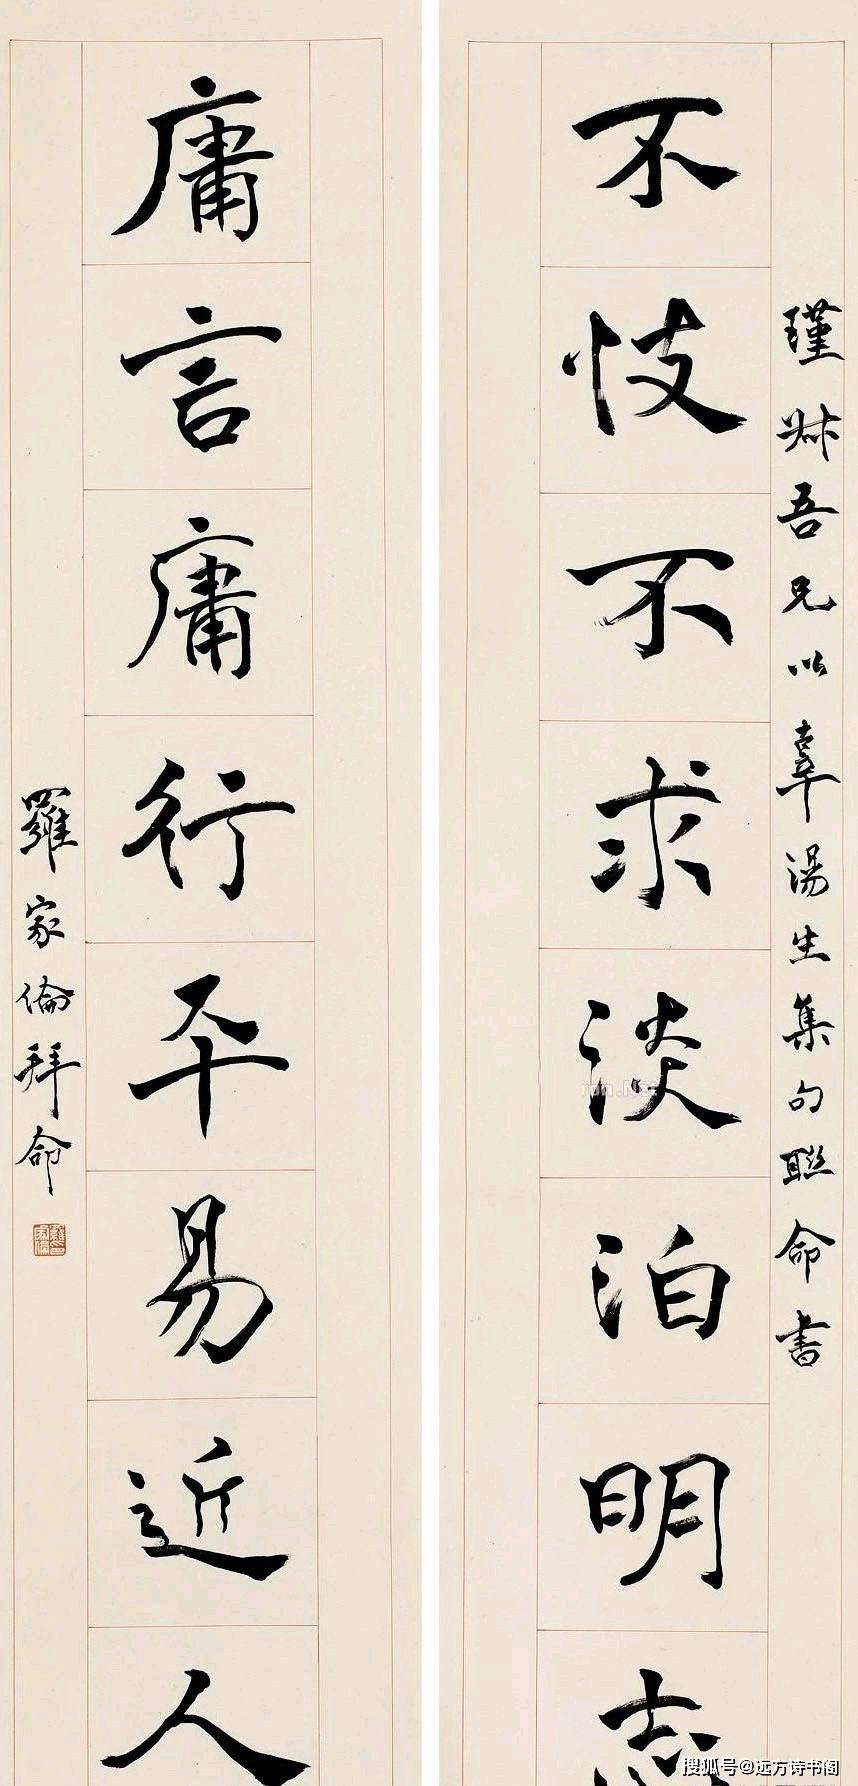 瑾叔吾兄以辜湯生集句聯命書
不忮不求淡泊明志
庸言庸行平易近人
羅家倫拜命
搜狐号@远方诗书阁